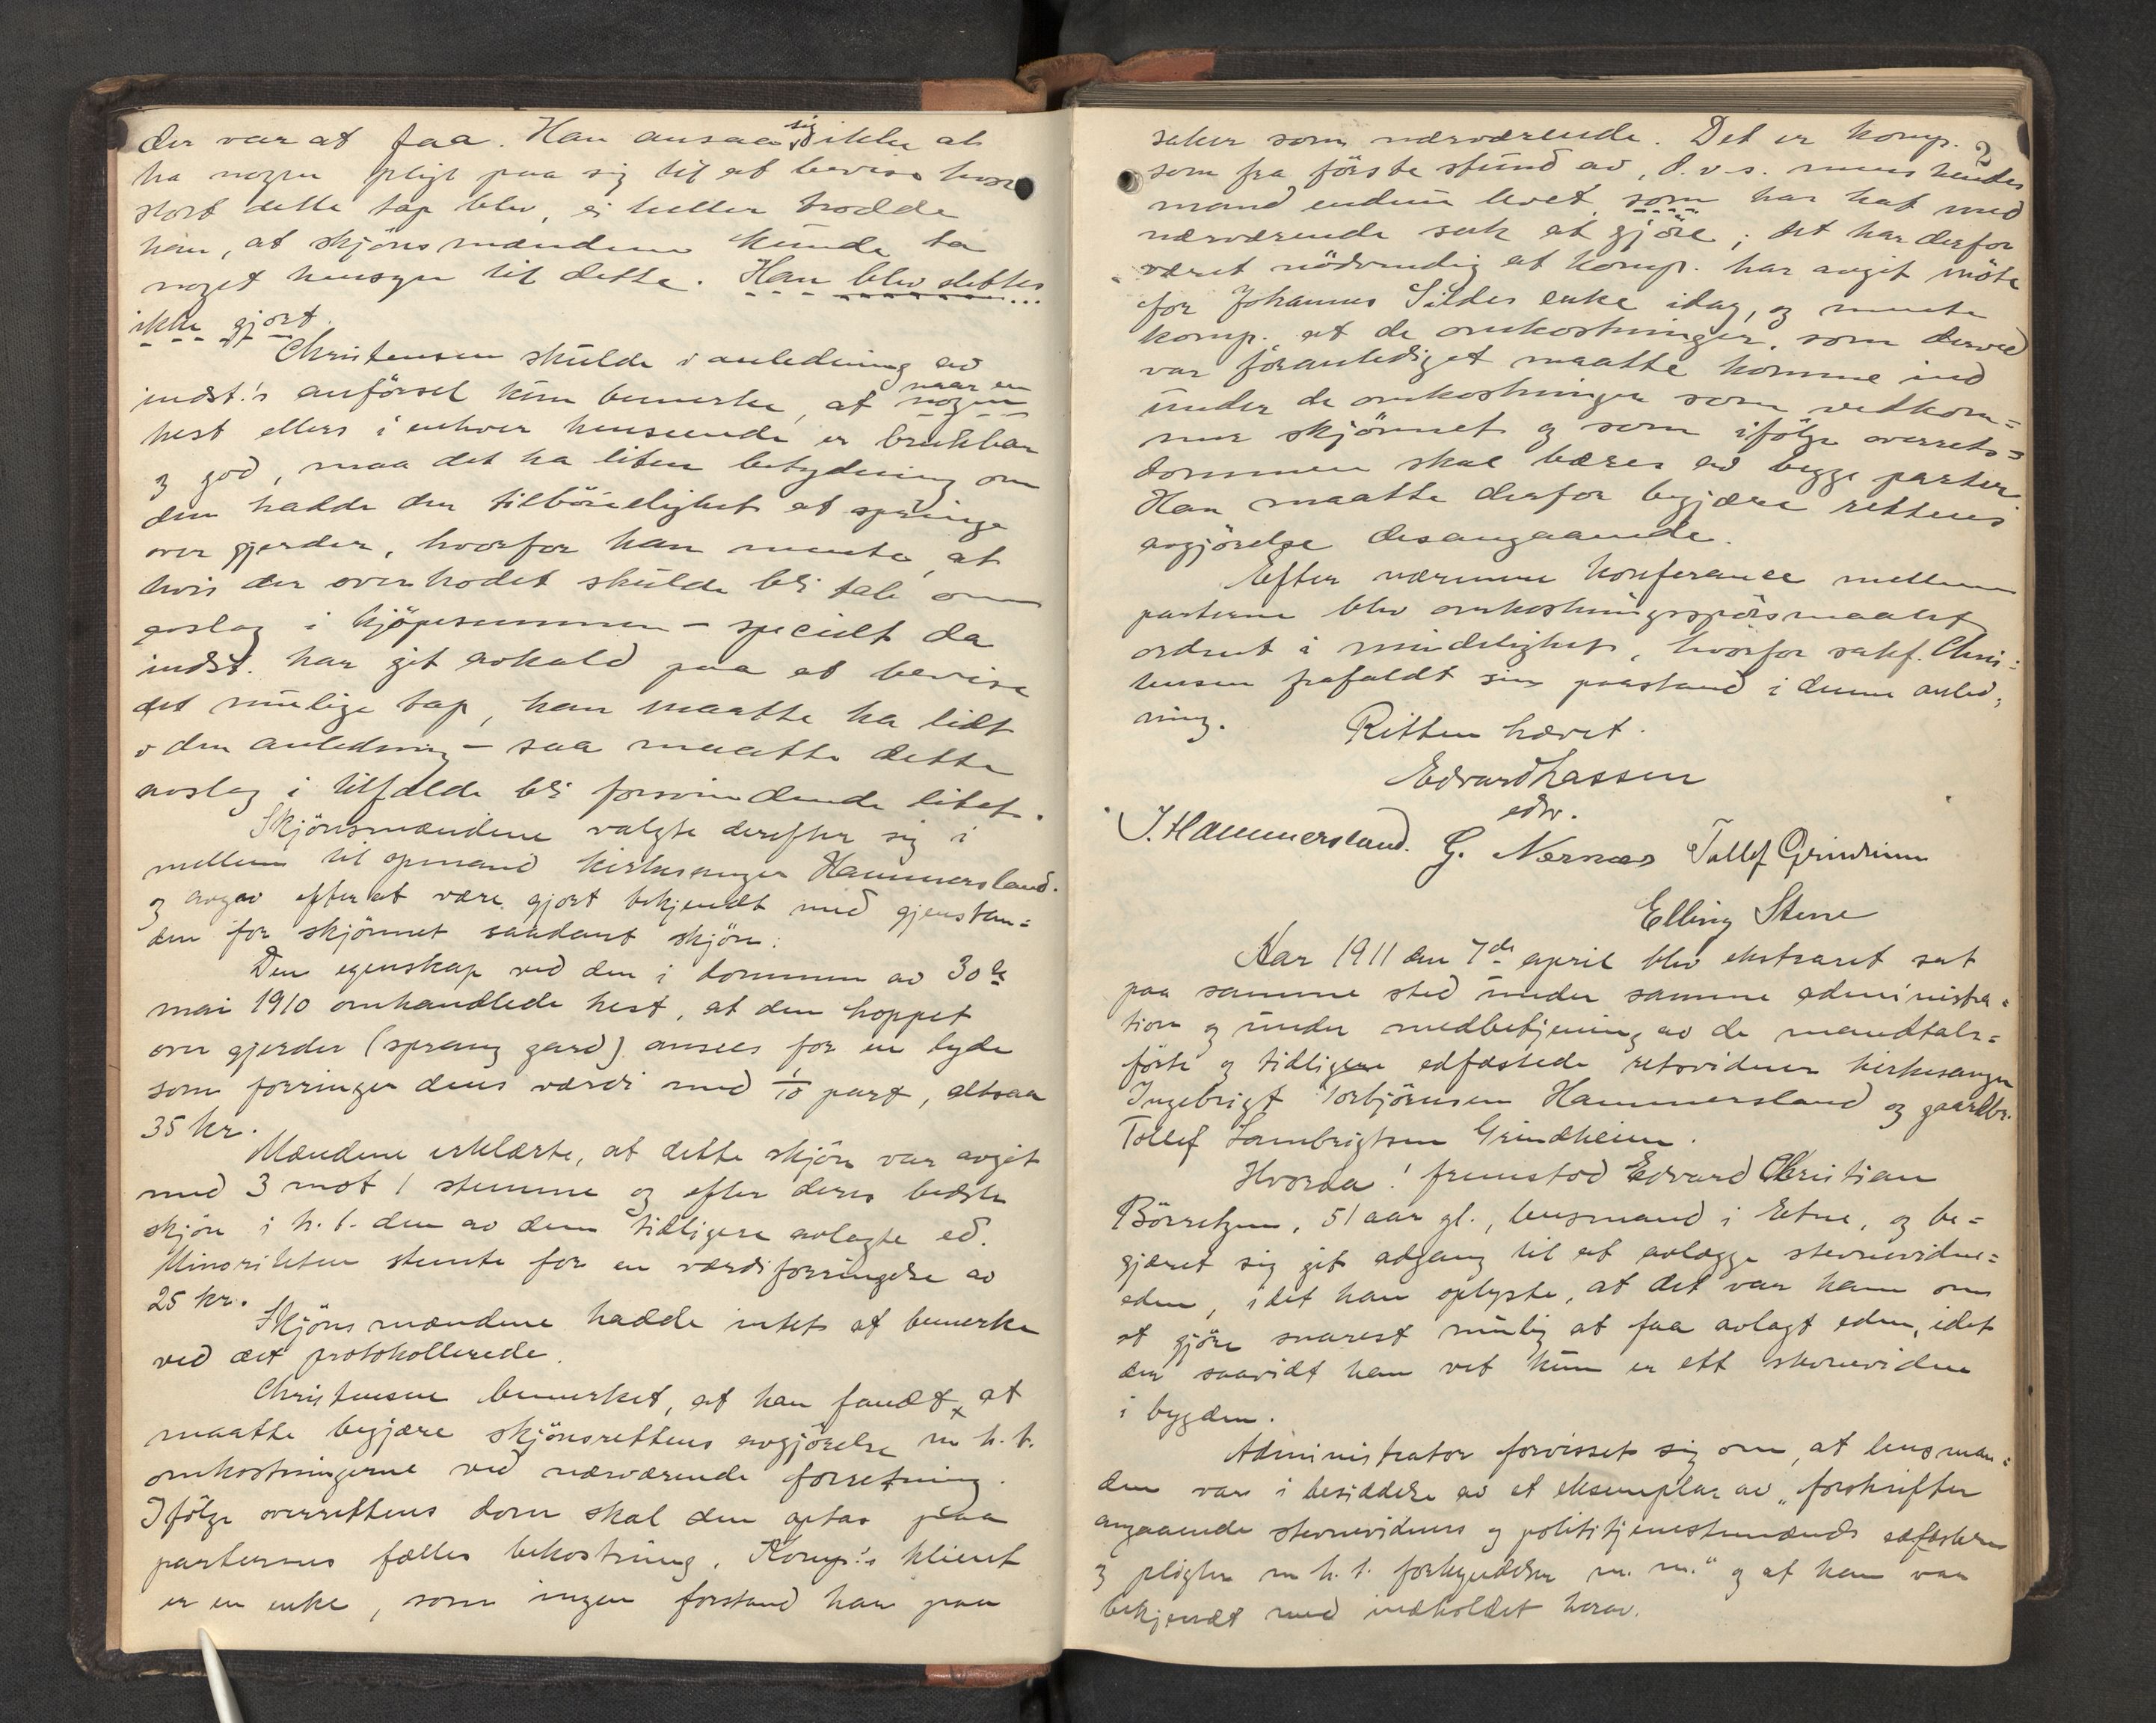 der var at faa. Han ansaa sig ikke at
ha nogen pligt paa sig til at bevise hvor
stort dette tap blev, ei heller trodde
han, at skjønsmændene kunde ta
noget hensyn til dette. Han blev slettes
ikke gjort.
Christensen skulde i anledning av
indst.'s anförsel kun bemerke, at naar en nogen
hest ellers i enhver henseende er brukbar
og god, maa det ha liten betydning om
den hadde den tilböielighet at springe
over gjerder, hvorfor han mente, at
hvis der overhodet skulde bli tale om
avslag i kjöpesummen – specielt da
indst. har git avkald paa at bevise
det mulige tap, han maatte ha lidt
i den anledning – saa maatte dette
avslag i tilfælde bli forsvindende litet.
Skjönsmændene valgte derefter sig i
mellem til opmand kirkesanger Hammersland.
og avgav efter at være gjort bekjendt med gjenstan=
den for skjönnet saadant skjön:
Den egenskap ved den i dommen av 30te
mai 1910 omhandlede hest, at den hoppet
over gjerder (sprang gard) ansees for en lyde
som forringer dens værdi med 1/10 part, altsaa
35 kr.
Mændene erklærte, at dette skjön var avgit
med 3 mot 1 stemme og efter deres bedste
skjön i h. t. den av dem tidligere avlagte ed.
Minoriteten stemte for en værdiforringelse av
25 kr.
Skjönsmændene hadde intet at bemerke
ved det protokollerede.
Christensen bemerket, at han fandt x at
maatte begjære skjönsrettens avgjörelse m. h. t.
omkostningerne ved nærværende forretning.
Ifölge overrettens dom skal den optas paa
parternes fælles bekostning. Komp.'s klient
er en enke, som ingen forstand har paa
2
saker som nærværende. Det er komp.
som fra förste stund av, d.v.s. mens hendes
mand endnu levet, som har hat med
nærværende sak at gjöre; det har derfor
været nödvendig at komp. har avgit möte
for Johannes Sildes enke idag, og mente
komp. at de omkostninger, som derved
var foranlediget maatte komme ind
under de omkostninger som vedkom=
mer skjönnet og som ifölge overrets=
dommen skal bæres av begge parter
Han maatte derfor begjære rettens
avgjörelse desangaaende.
Efter nærmere konferance mellem
parterne blev omkostningsspörsmaalet
ordnet i mindelighet, hvorfor sakf. Chris=
tensen frafaldt sin paastand i denne anled=
ning.
Retten hævet.
Edvard Lassen
edv.
I. Hammersland. G. Nernæs Tollef Grindheim
Elling Stene
Aar 1911 den 7de april blev ekstraret sat
paa samme sted under samme administra=
tion og under medbetjening av de mandtals=
förte og tidligere edfæstede retsvidner kirkesanger
Ingebrigt Torbjörnsen Hammersland og gaardbr.
Tollef Lambrigtsen Grindheim.
Hvorda! fremstod Edvard Christian
Börretzen, 51 aar gl., lensmand i Etne, og be=
gjæret sig git adgang til at avlægge stevnevidne=
eden, idet han oplyste, at det var ham om
at gjöre snarest mulig at faa avlagt eden, idet
der saavidt han vet kun er ett stevnevidne
i bygden.
Administrator forvisset sig om, at lensman=
den var i besiddelse av et eksemplar av „forskrifter
angaaende stevnevidners og polititjenestemænds edfæstelse
og pligter m. h. t. forkyndelser m. m.“ og at han var
bekjendt med indholdet herav.